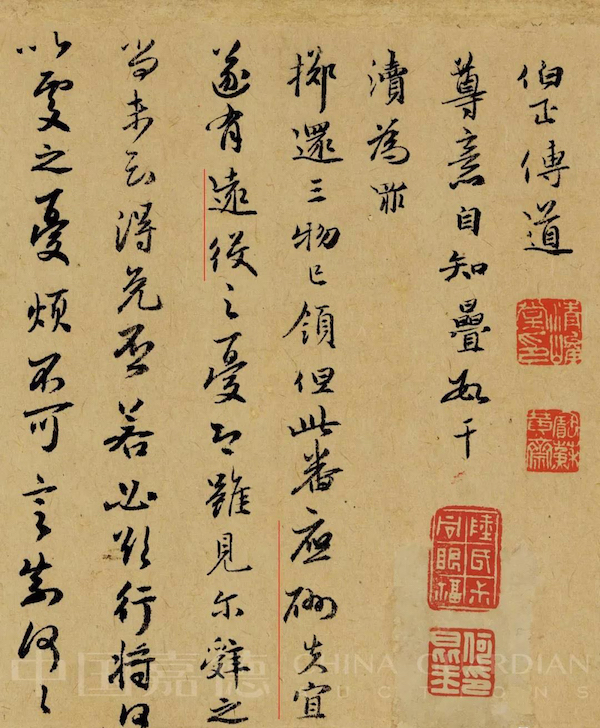 伯正傳道
尊意自知疊干
瀆為罪
擲還三物已領但此番應酬失宜
遂有遠役之憂雖見爾辭之
尚未知得免否若必欲行將何
以處之憂煩不可言奈何〻
中国嘉德 CHINA GUARDIAN
AUCTIONS